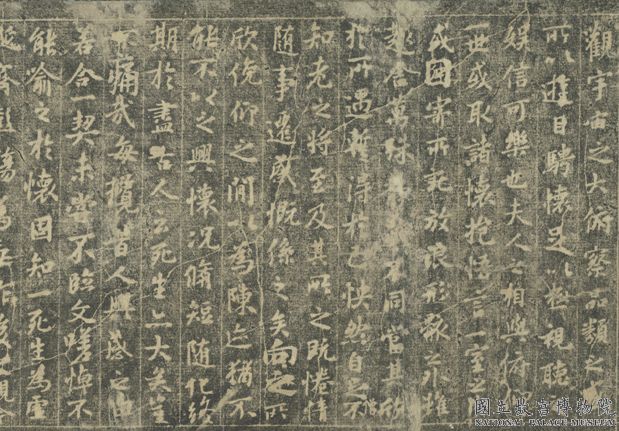 觀宇宙之大俯察品類之
所以遊目騁懷足以極視聽
娛信可樂也夫人之相與俯
一世或取諸懷抱悟言一室之
或因寄所託放浪形骸之外雖
趣舍萬殊不同當其欣
於所遇暫得於己快然自足不
知老之將至及其所之既惓情
隨事遷感慨係之矣向之所
欣俛仰之間以為陳迹猶不
能不以之興懷況脩短隨化終
期於盡古人云死生亦大矣豈
不痛哉每攬昔人興感之由
若合一契未嘗不臨文嗟悼不
能喻之於懷固知一死生為虛
齊彭殤為妄作後之視今
國立故宮博物院
NATIONAL PALACE MUSEUM